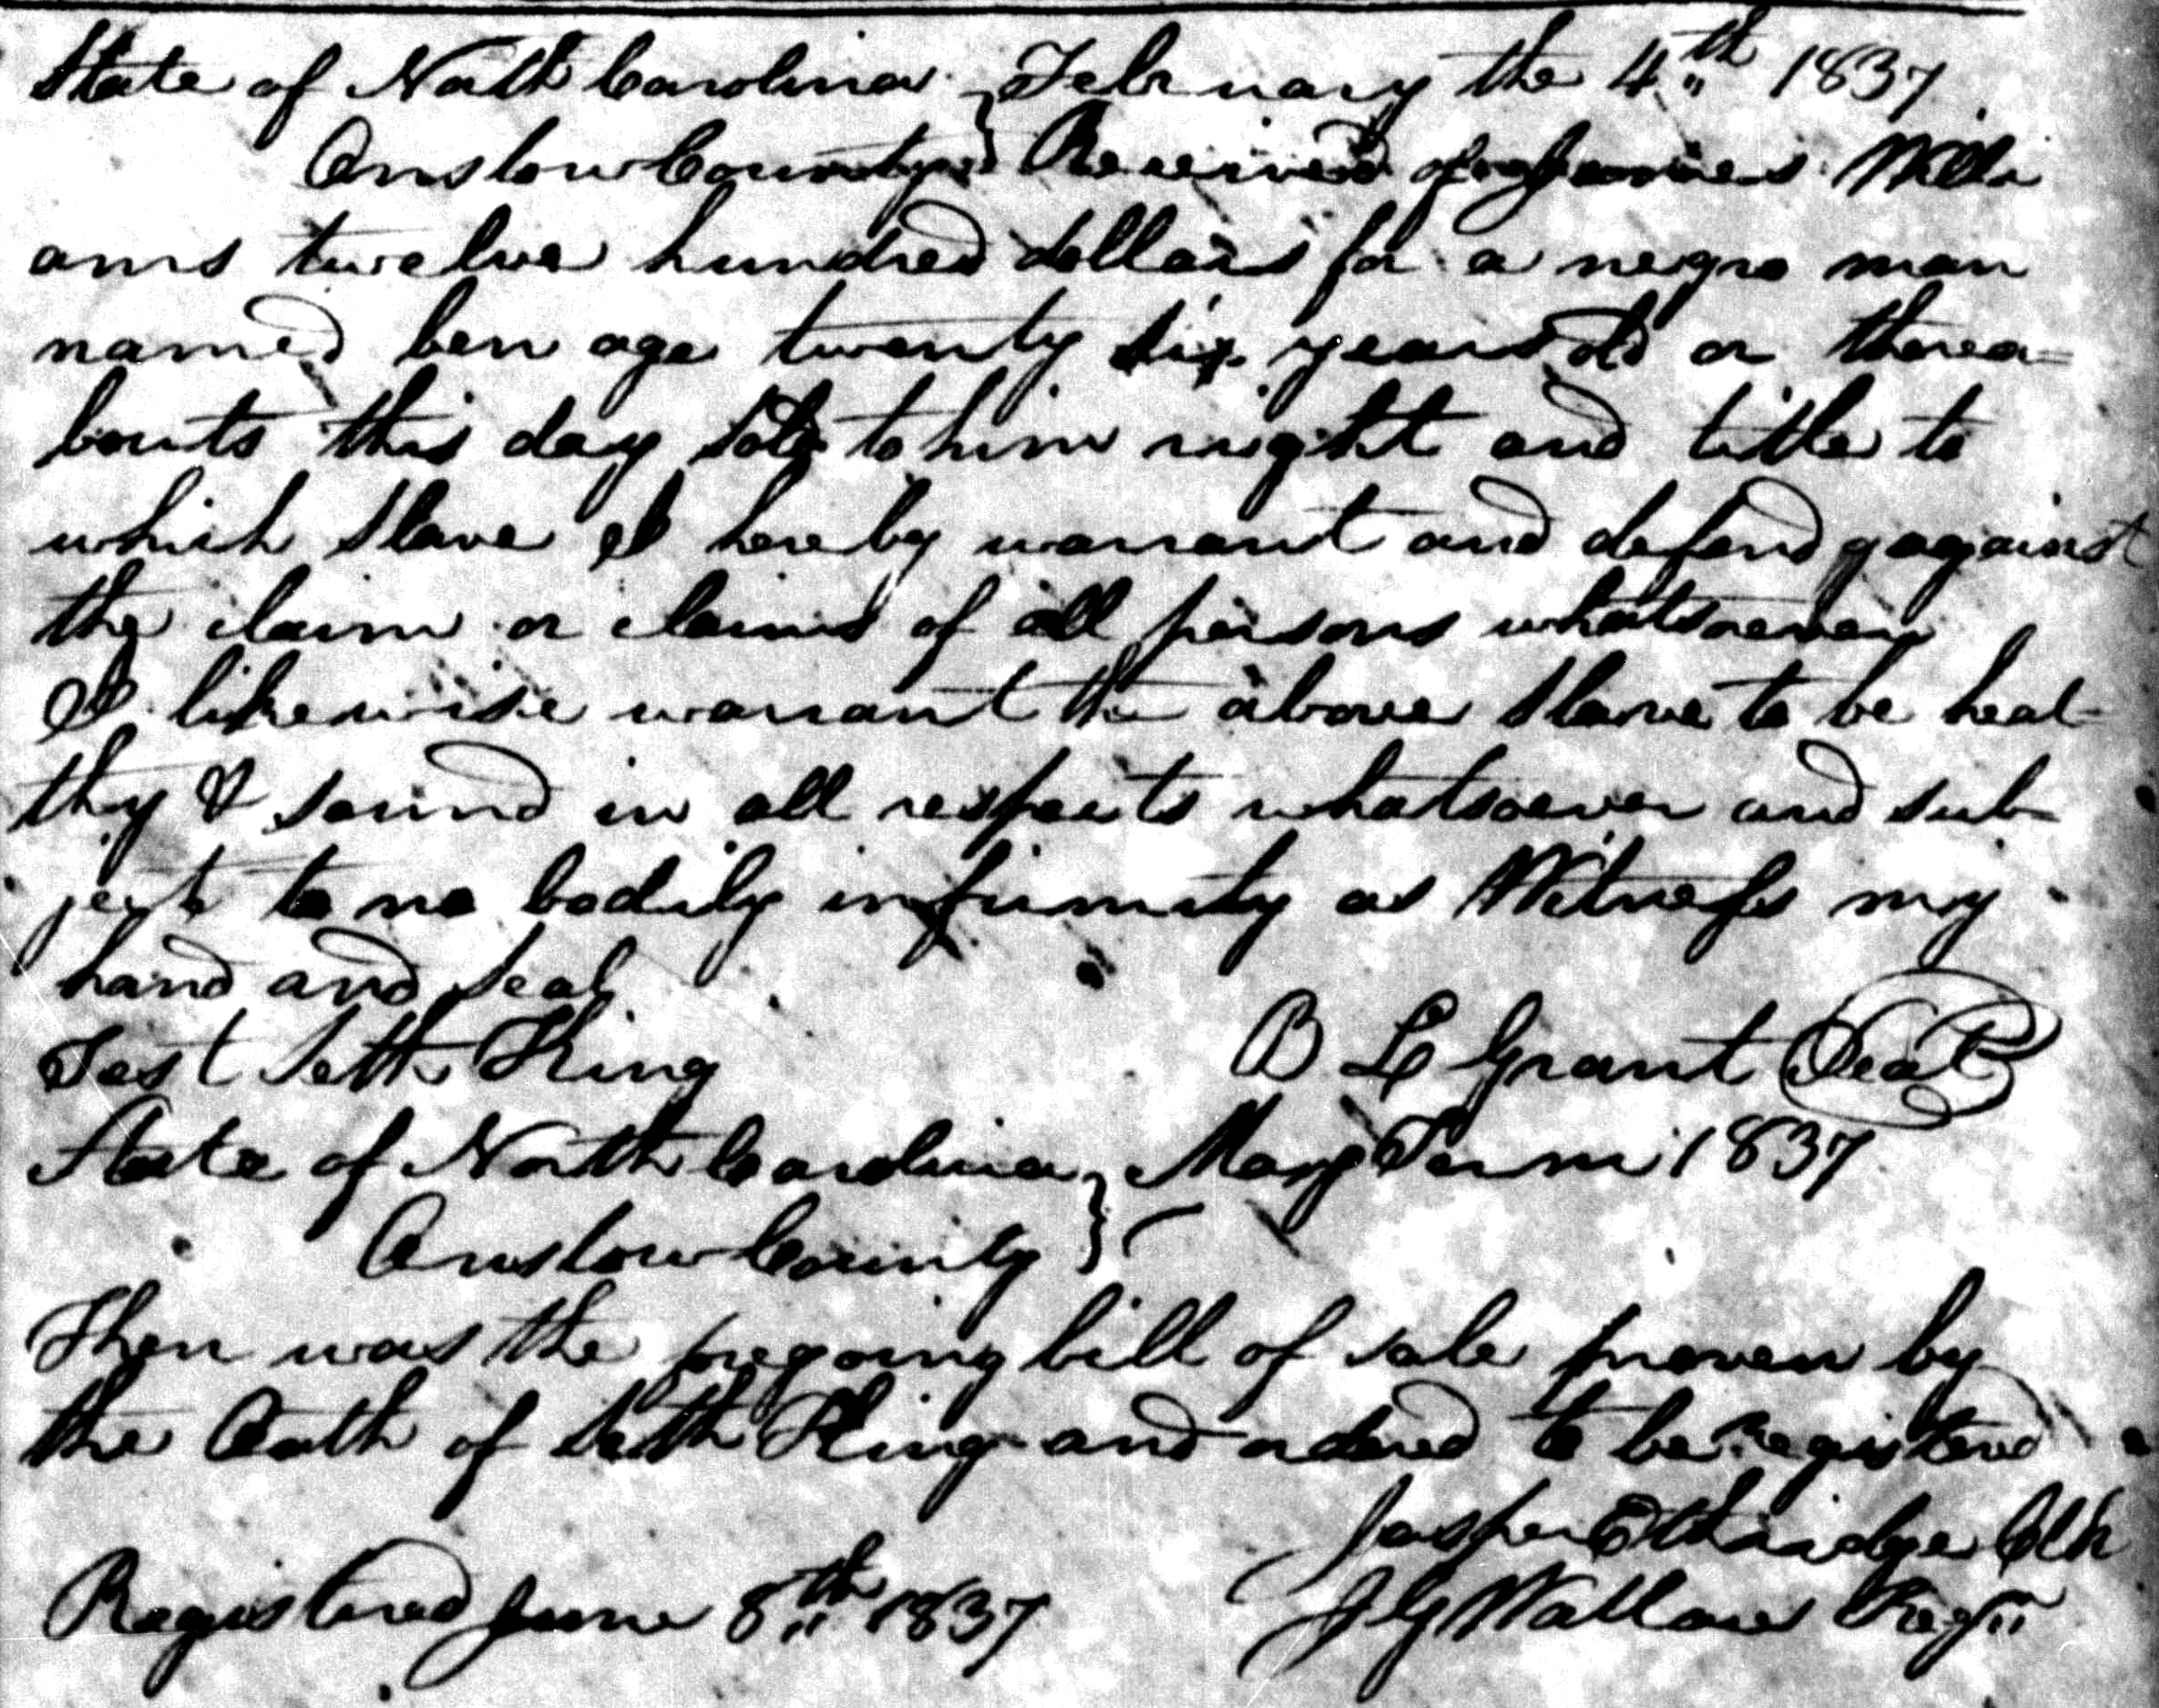 State of North Carolina } February the 4th 1837
Onslow County } Received of James Willi
ams twelve hundred dollars for a negro man
named ben age twenty six years old or therea=
bouts this day sold to him right and title to
which slave I hereby warrant and defend against
the claim or claims of all persons whatsoever
I likewise warrant the above slave to be heal-
thy & sound in all respects whatsoever and sub-
ject to no bodily infirmity as Witness my
hand and seal
Test Seth King B L Grant Seal
State of North Carolina } May Term 1837
Onslow County }
Then was the forgoing bill of sale proven by
the Oath of Seth King and ordered to be Registered
Jasper Etheridge Clk
Registered June 8th 1837 J G Wallace Regr